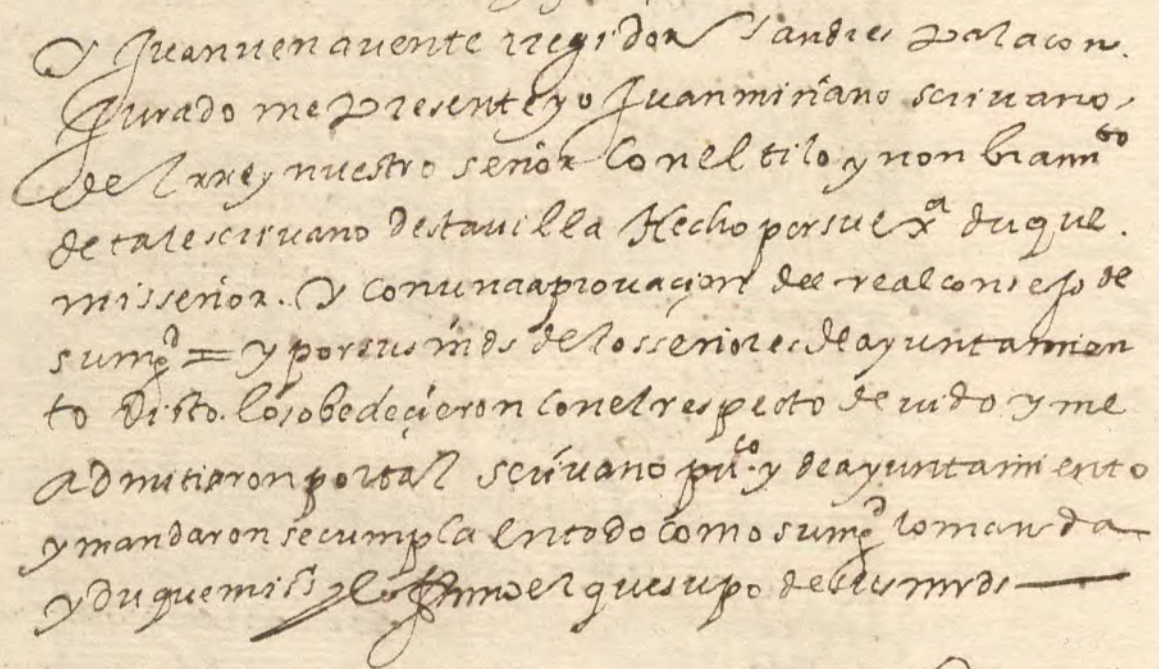 Y Juan venavente rregidor Y andres Palacon.
Jurado me Presente yo Juan miñano scrivano
del rrey nuestro señor Con el titlo y nonbiamito
de tal escrivano desta villa Hecho por su exa duque.
mi sseñor. Y con una aprovaçion del real consejo de
su mgd = y por sus mds de los señores de ayuntamien
to Visto. los obedeçieron con el respecto devido y me
admitieron por tal scrivano puco. y de ayuntamiento
y mandaron se cumpla En todo como su mgd lo manda
y duque mi sr y lo firmo el que supo de sus mrds